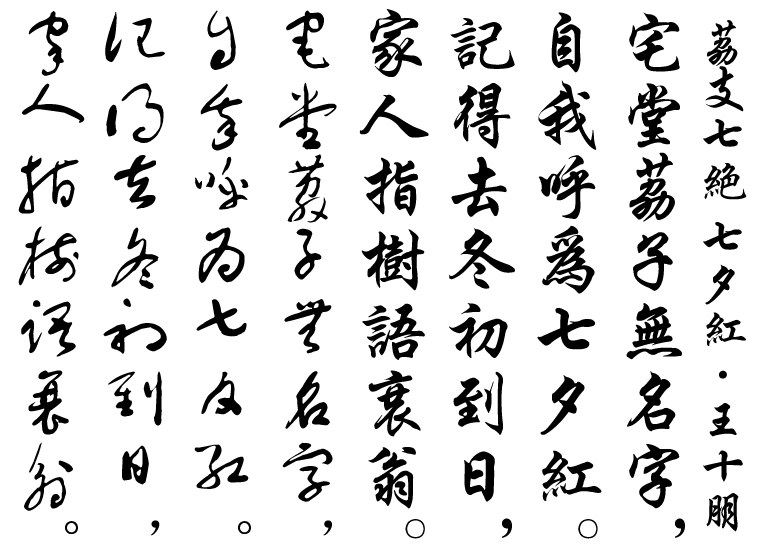 荔支七絶 七夕紅·王十朋
宅堂荔子無名字，
自我呼爲七夕紅。
記得去冬初到日，
家人指樹語衰翁。
宅堂荔子無名字，
自我呼为七夕紅。
记得去冬初到日，
家人指树语衰翁。